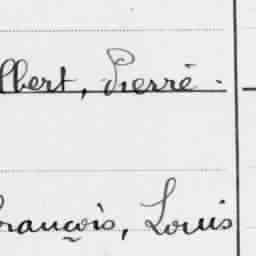 lbert, Pierre.
François, Louis